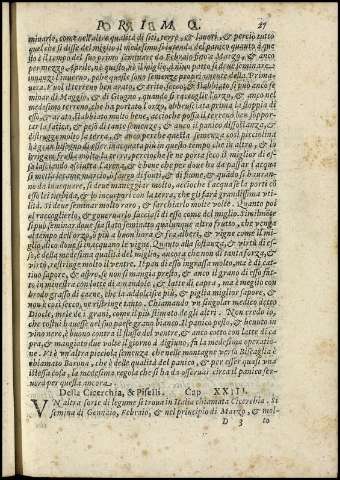 P O R I M O. 27
minarlo, come nell'altre qualità di siti, terre, & lauori, & perciò tutto
quel che si disse del miglio il medesimo s'intenda del panico quanto à que
sto il tempo del suo primo seminare da Febraio fino a Marzo, & anco
per mezzo Aprile, ne questo, nè il miglio, à niun patto si deue seminare
innanzi il inuerno, pche queste son semenze proprie veramente della Prima-
uera. Vuol il terreno ben arato, e trito, secco, & stabbiato, si può anco se
minar di Maggio, & di Giugno, quando si raccoglie l'orzo, & anco nel
medesimo terreno, che ha portato l'orzo, abbrusciata prima la stoppia di
esso, & arato, stabbiato molto bene, acciòche possa il terreno ben soppor-
tar la fatica, & peso di tante semenze, & anco il panico
distrugge molto la terra, & anco perche questa semenza così piccinina
hà gran bisogno di esser inacquata più in questo tempo che in altro, & lo
irrigare frutta molto la terra, percioche se ne porta seco il miglior di es-
sa lasciando asciutta l'arena, & è bene che per doue ha da passar l'acqua
si metta letame marcio, ò sargo di fonti, & di fiume, & quādo si hauran-
no da inacquare, si deue maneggiar molto, acciòche l'acqua se la porti cō
esso lei torbida, & incorpori con la terra, che gli farà grandissima vti-
lità. Si deue seminar molto raro, & sarchiarlo molte volte. Quanto poi
al raccoglierlo, & gouernarlo facciasi di esso come del miglio. Similmēte
si può seminar doue sia stato seminato qualunque altro frutto, che venga
à tempo dell'orzo, ò più à buon hora & frà alberi, & vigne come il mi-
glio, dico doue si inacquano le vigne. Quanto alla sostanza, & virtù di es-
so, è della medesima qualità del miglio, ancora che non di tanta forza, &
virtù, ristringe molto il ventre. Il pan di esso ingrassa molto, ma è di cat-
tiuo sapore, & aspre, se non si mangia presto, & anco il grano di esso fat-
to in menestra con latte di amandole, & latte di capra, ma è meglio con
brodo grasso di carne, che la addolcisce più, & piglia miglior sapore, &
non è così secco, ne ristringe tanto. Chiamando vn singolar medico detto
Diocle, mele de i grani, come il più stimato de gli altri. Non credo io,
che costui hauesse nel suo paese grano bianco. Il panico pesto, & beuuto in
vino nero, è buono contra il flusso del ventre, & anco cotto con latte di ca
pra, & mangiato due volte il giorno à digiuno, fà la medesima operatio-
ne. V'è vn'altra picciola semenza che nelle montagne verso Biscaglia è
chiamato Barona, che è delle qualità del panico, & per esser quasi vna
istessa cosa, la medesima regola che si hà da osseruar circa il panico ser-
uerà per questa ancora.
Della Cicerchia, & Piselli. Cap. XXIII.
VN'altra sorte di legume si troua in Italia chiamata Cicerchia. Si
semina di Gennaio, Febraio, & nel principio di Marzo, & mol-
D 3 to